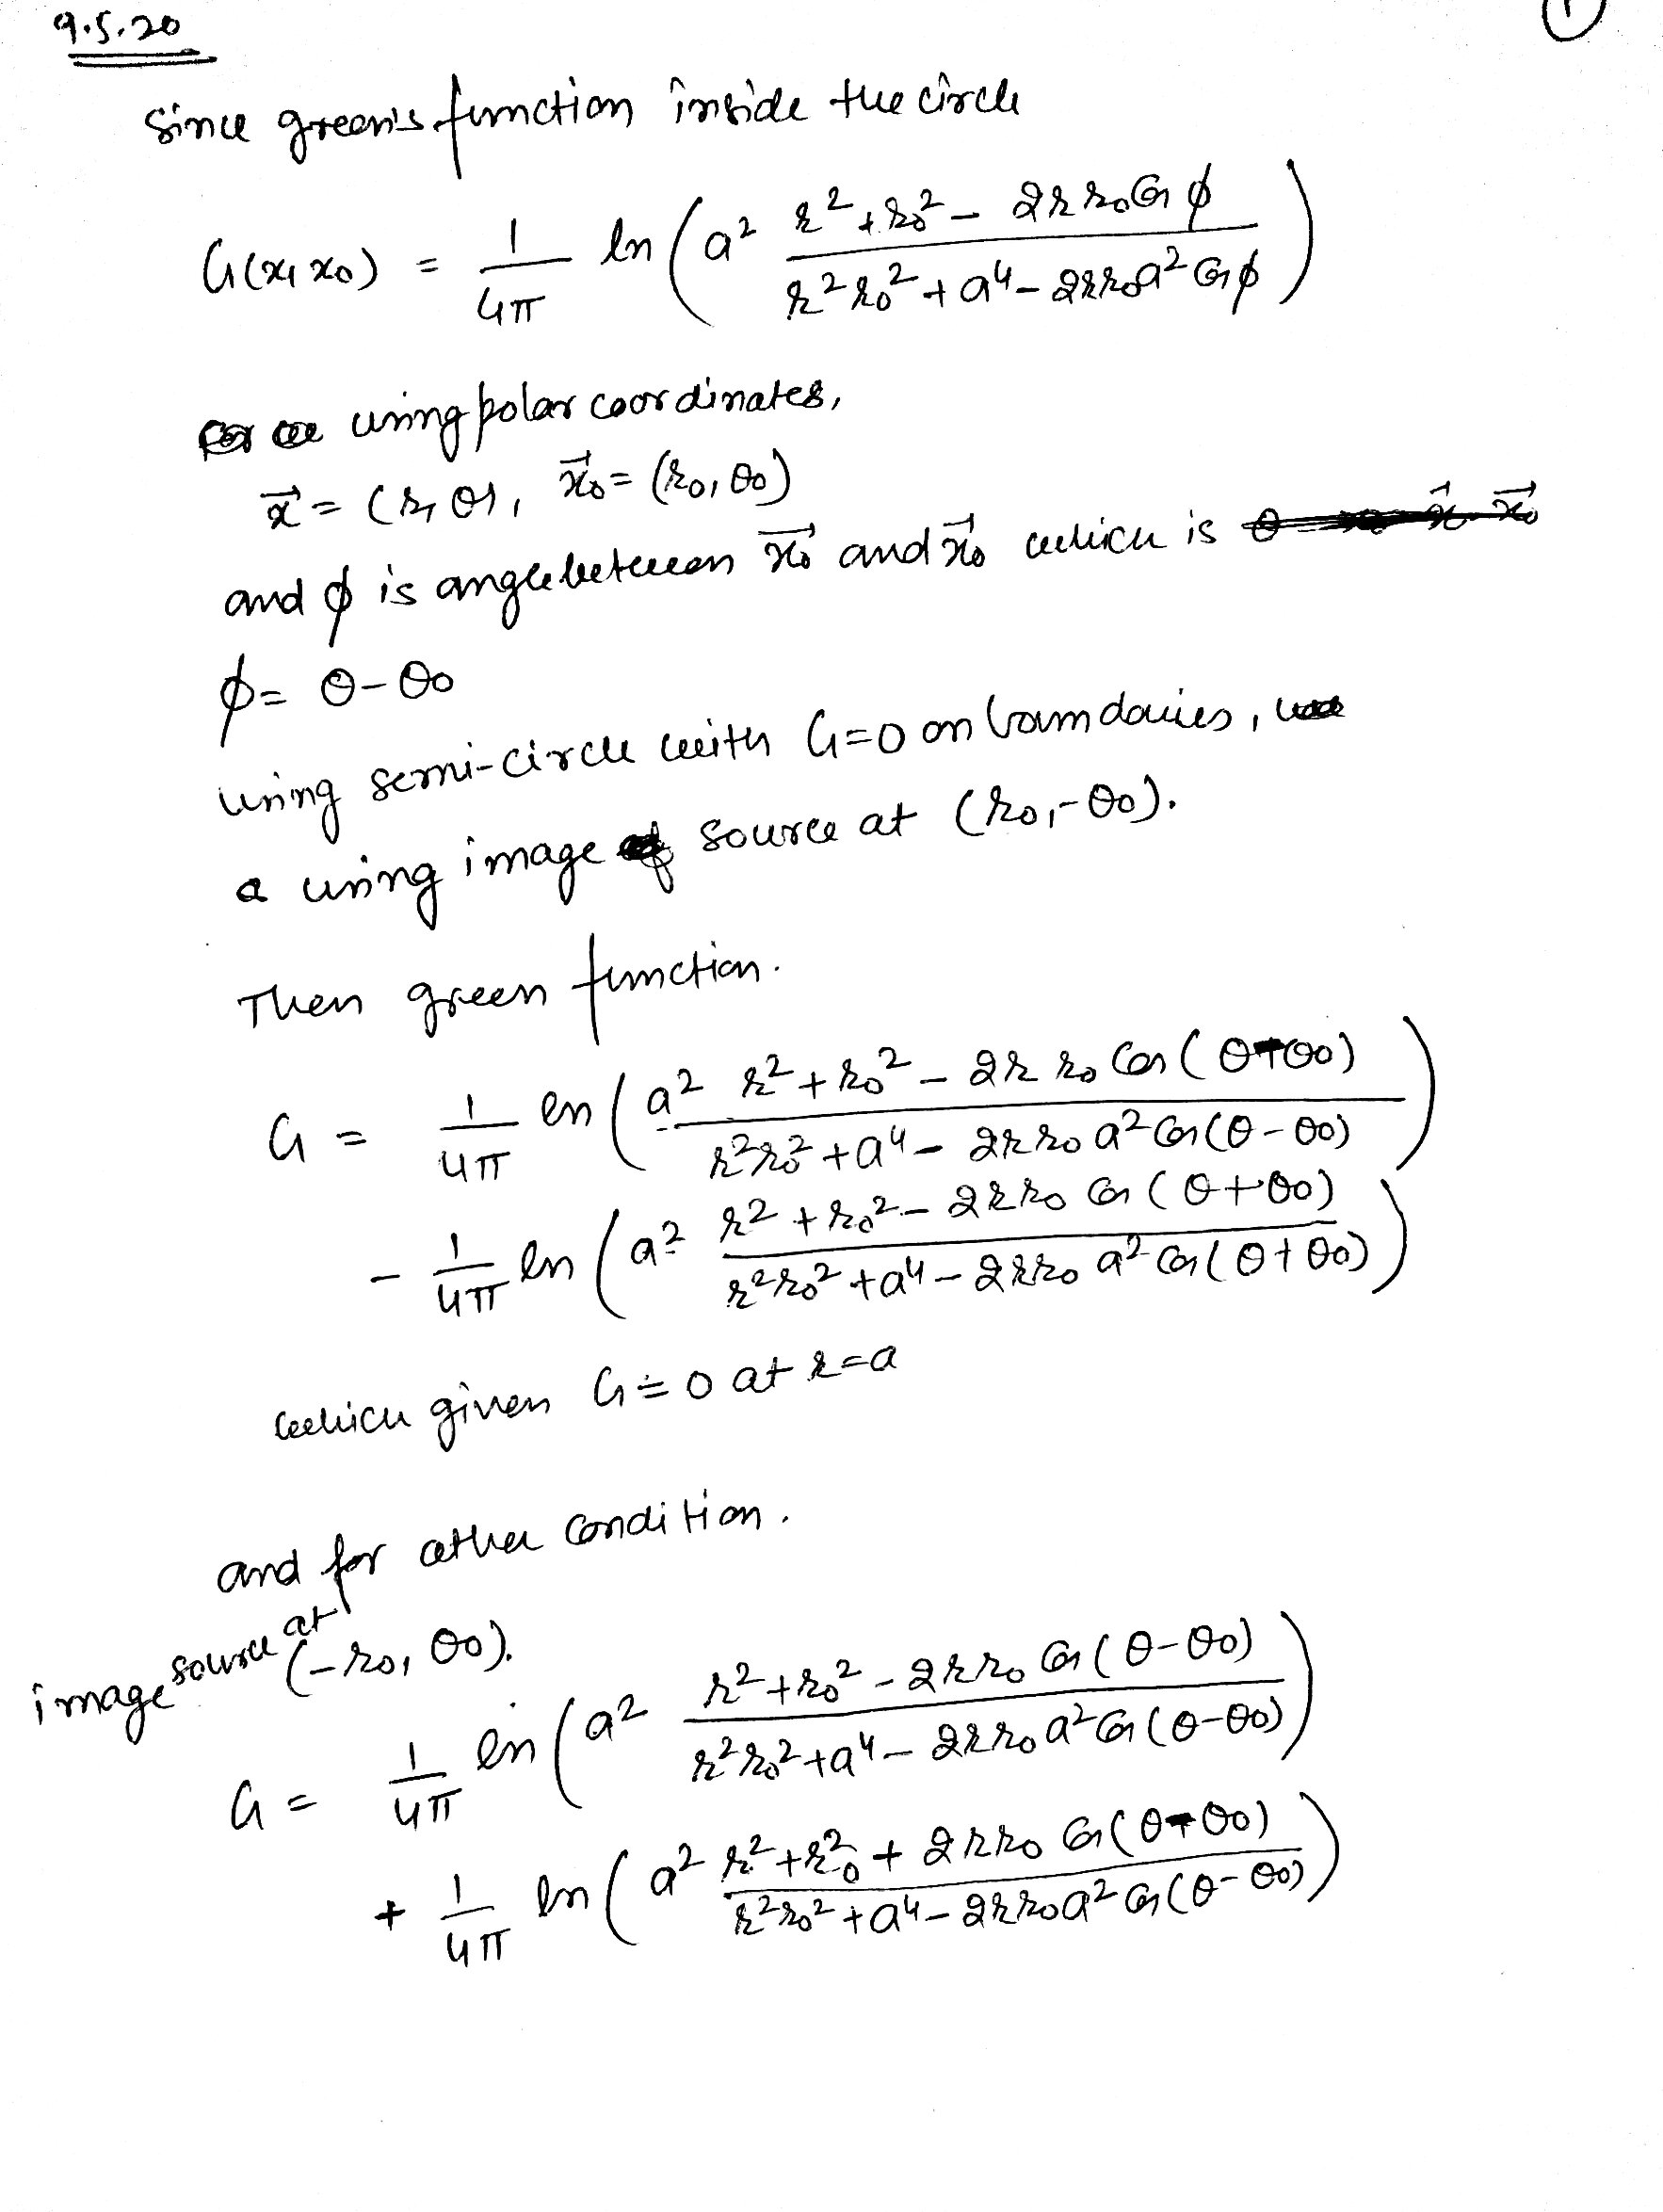 9.5.20
1
Since green's function inside the circle
G(x, x0) = 1/4π ln (a² (r² + r0² - 2r r0 Cos φ)/(r² r0² + a⁴ - 2r r0 a² Cos φ))
using polar coordinates,
x⃗ = (r, θ), x⃗0 = (r0, θ0)
and φ is angle between x⃗0 and x⃗0 which is
φ = θ - θ0
using semi-circle with G=0 on boundaries,
a using image source at (r0, -θ0).
Then green function.
G = 1/4π ln (a² (r² + r0² - 2r r0 Cos (θ-θ0))/(r² r0² + a⁴ - 2r r0 a² Cos (θ - θ0)))
- 1/4π ln (a² (r² + r0² - 2r r0 Cos (θ + θ0))/(r² r0² + a⁴ - 2r r0 a² Cos (θ + θ0)))
which given G = 0 at r = a
and for other condition.
image source at (-r0, θ0).
G = 1/4π ln (a² (r² + r0² - 2r r0 Cos (θ - θ0))/(r² r0² + a⁴ - 2r r0 a² Cos (θ - θ0)))
+ 1/4π ln (a² (r² + r0² + 2r r0 Cos (θ-θ0))/(r² r0² + a⁴ - 2r r0 a² Cos (θ - θ0)))